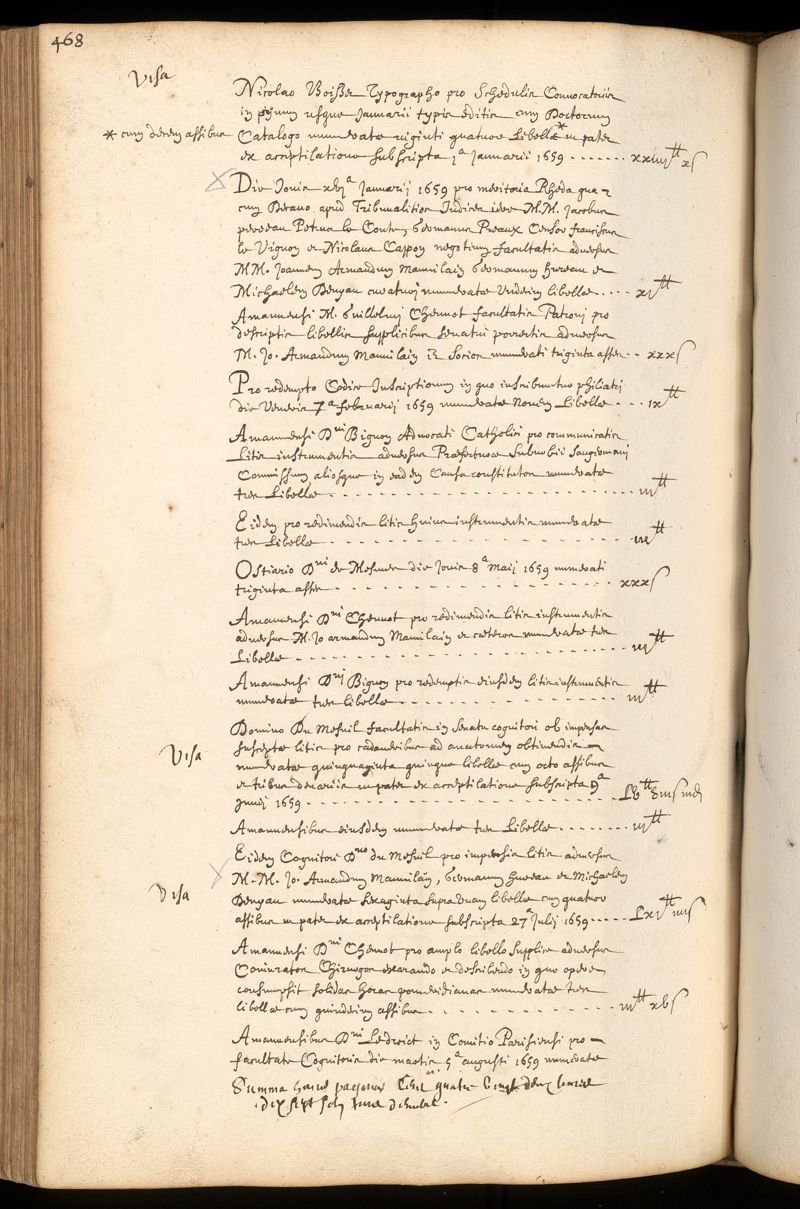 468
Visa
Nicolao Boisset Typographo pro Schedulis Convocatoriis
in primum usque Januarii typis editis cum Doctorum
* cum decem assibus
Catalogo numeratæ viginti quatuor Libellæ * ut patet
ex acceptilatione subscripta 1ª Januarii 1659 ....... xxiiij ₶ x ſ
Die Jovis xbjª Januarij 1659 pro meritoria Rheda qua
cum Decano apud Tribunalitios Judices iere M.M. Jacobus
perreau Petrus le Conte, Germanus Preaux Censor franciscus
le Vignon et Nicolaus Cappon negotium facultatis adversus
MM. Joannem Armandum Mauvilain Germanum hureau et
Michaelem Denyau curaturi numeratæ Undecim libellæ .... xi ₶
Amanuensi M. Guillelmi Chenuot facultatis Patroni pro
descriptis libellis supplicibus senatui porrectis adversus
M. Jo. Armandum Mauvilain et Socios numerati triginta asses .. xxx ſ
Pro redempto Codice Inscriptionum in quo inscribuntur philiatri
die Veneris 7ª februarij 1659 numeratæ Novem Libellæ .... ix ₶
Amanuensi Dni Bignon Advocati Catholici pro communicatis
Litis instrumentis adversus Præfectum Suburbii Sangermani
Commissum aliosque in eadem Causa constitutos numeratæ
tres Libellæ .................. iij ₶
Eidem pro redimendis litis huius instrumentis numeratæ
tres Libellæ .................. iij ₶
Ostiario Dni de Mesmes die Jovis 8ª Maij 1659 numerati
triginta asses .................. xxx ſ
Amanuensi Dni Chenuot pro redimendis litis instrumentis
adversus M. Jo armandum Mauvilain et cæteros numeratæ tres
Libellæ .................. iij ₶
Amanuensi Dni Bignon pro redemptis eiusdem litis instrumentis
numeratæ tres libellæ .................. iij ₶
Domino Du Mesnil facultatis in Senatu cognitori ob impensas
Visa
susceptæ litis pro cadaveribus ad anatomen obtinendis
numeratæ quinquaginta quinque libellæ cum octo assibus
et tribus denariis ut patet ex acceptilatione subscripta 9ª
Junij 1659 .................. Lb ₶ 8 ſ
Amanuensibus eiusdem numeratæ tres Libellæ ....... iij ₶
Eidem Cognitori Dno du Mesnil pro impensis litis adversus
M.M. Jo. Armandum Mauvilain, Germanum hureau et Michaelem
Visa
Denyau numeratæ sexaginta supra unam libellæ cum quatuor
assibus ut patet ex acceptilatione subscripta 27ª Julij 1659 ..... Lxi ₶ iiij ſ
Amanuensi Dni Chenuot pro amplo libello supplice adversus
Chirurgos exarando et describendo in quo opere
consumpsit solidas horas pomeridianas numeratæ tres
libellæ cum quindecim assibus .................. iij ₶ xb ſ
Amanuensibus Dni Ledroict in Comitio Parisiensi pro
facultate Cognitoris die martis 5ª augusti 1659 numeratæ
Summa huius paginæ quatre vingt
dix sept sols trois deniers.